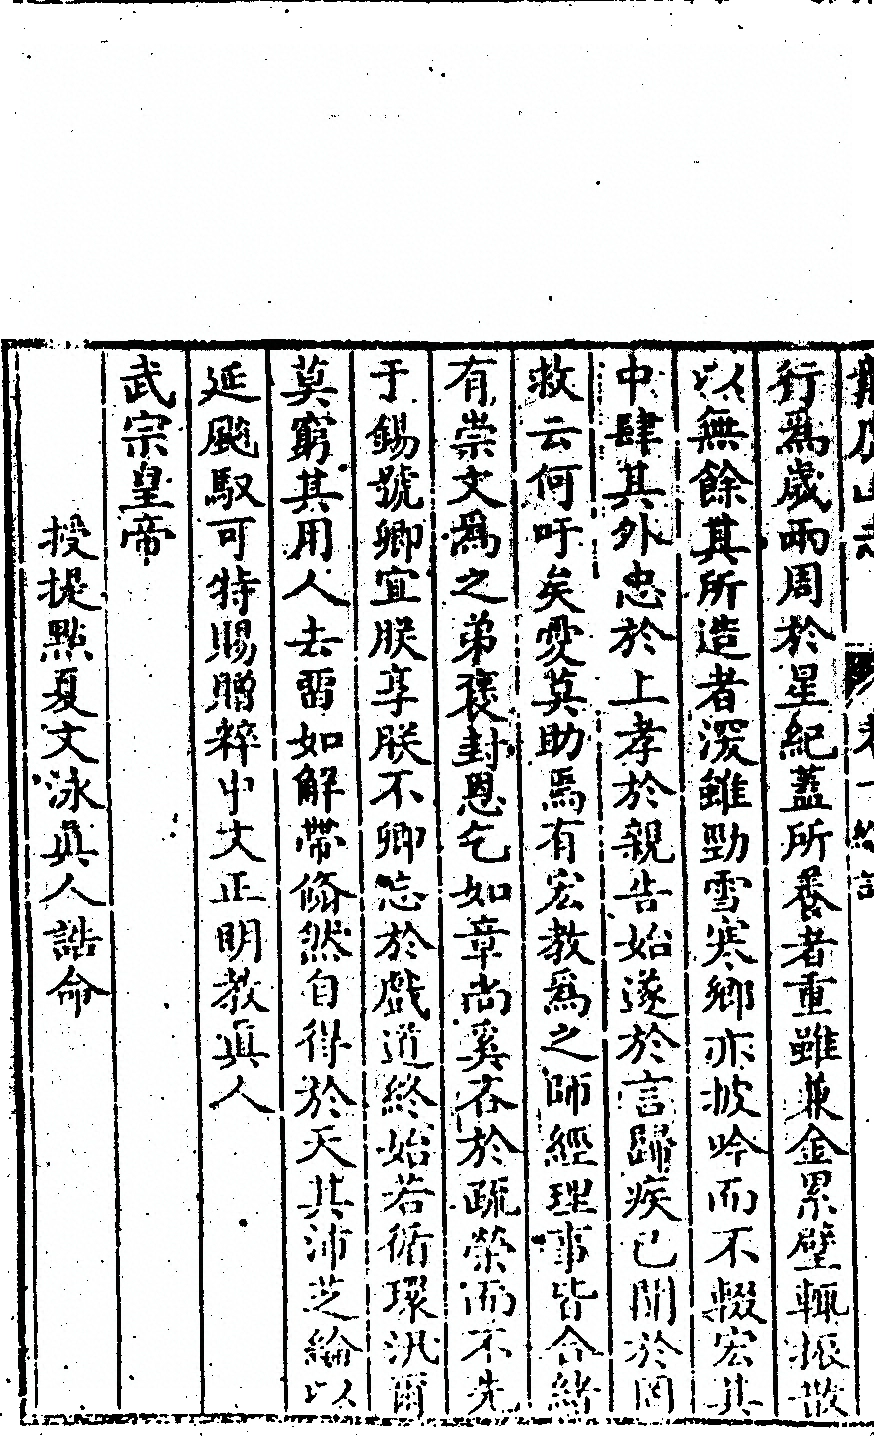 行爲歲兩周於星紀蓋所養者重雖兼金累璧輒振散
以無餘其所造者深雖勁雪寒鄉亦披吟而不輟宏其
中肆其外忠於上孝於親告始遂於言歸疾已聞於罔
救云何吁矣莫助焉有宏教爲之師經理事皆合緒
有崇文爲之弟褒封恩乞如章尚奚吝於疏榮而不先
于錫號卿宜朕享朕不卿忘於戲道終始若循環汎爾
莫窮其用人去留如解帶翛然自得於天其沛芝綸以
延飈馭可特賜贈粹中文正明教眞人
武宗皇帝
授提點夏文泳眞人誥命